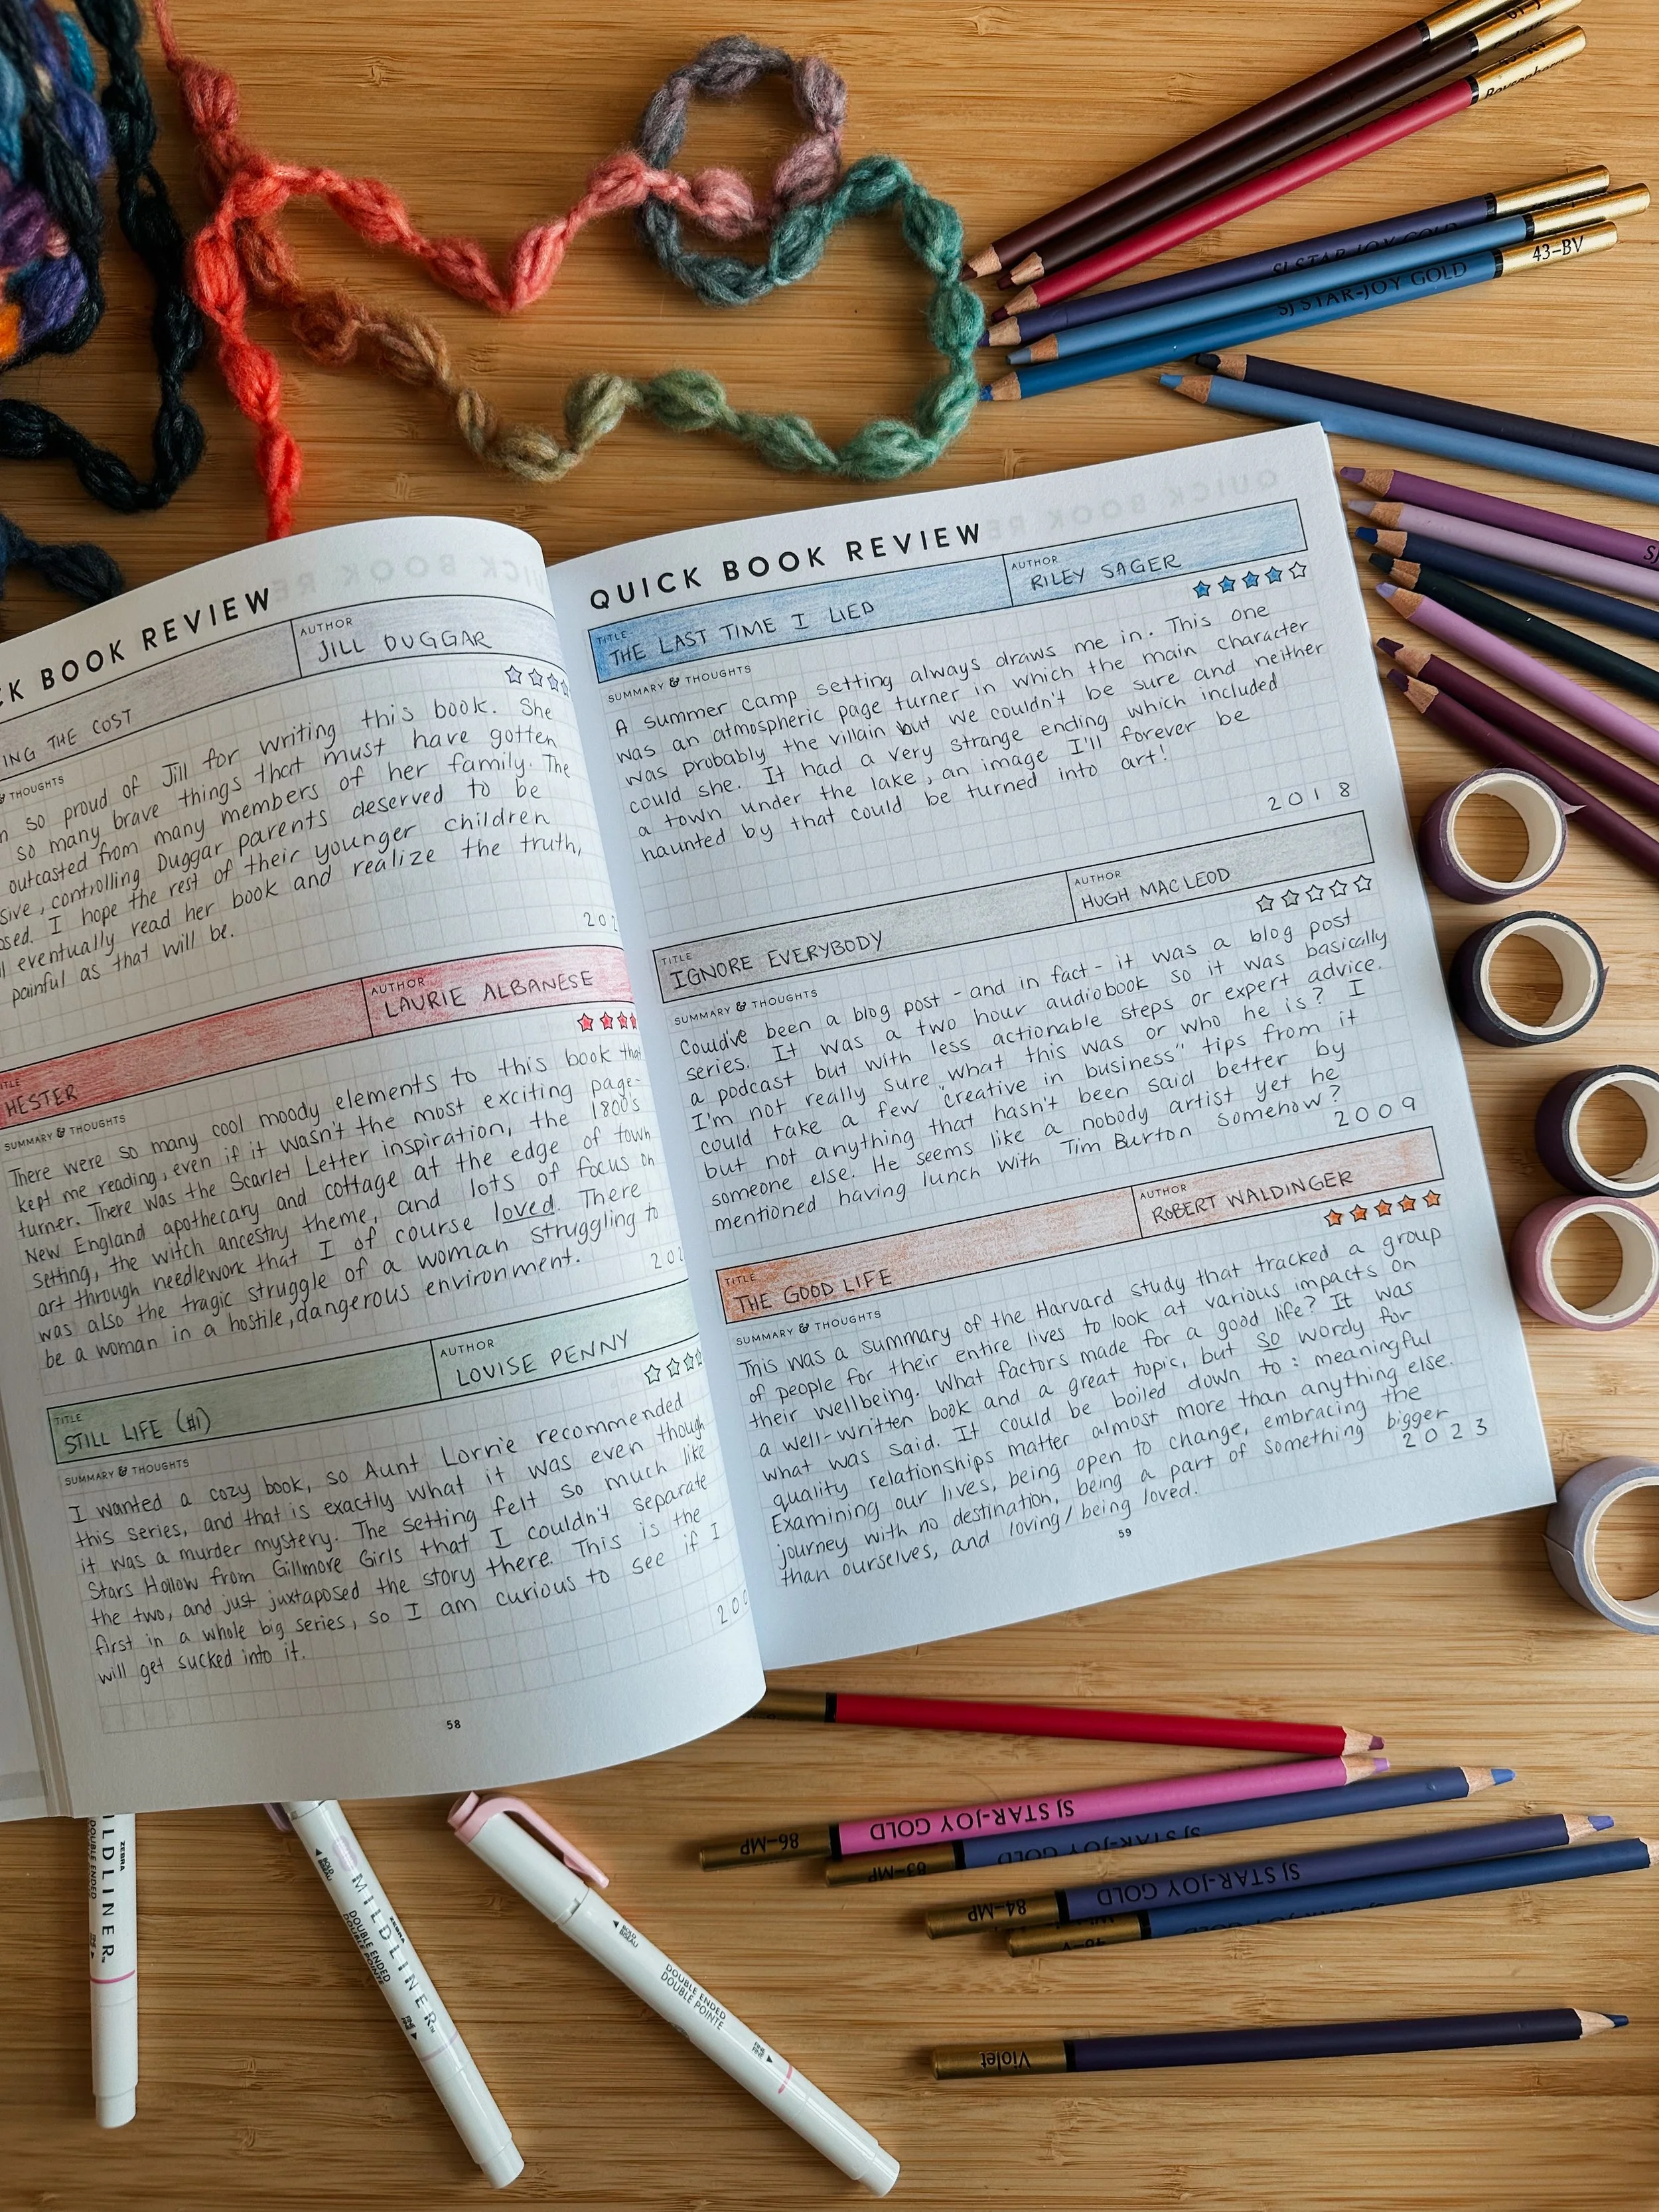 SJ STAR-JOY GOLD
SJ STAR-JOY GOLD
43-BV
BOOK REVIEW
AUTHOR
JILL DUGGAR
ING THE COST
& THOUGHTS
so proud of Jill for writing this book. She
so many brave things that must have gotten
outcasted from many members of her family. The
controlling Duggar parents deserved to be
I hope the rest of their younger children
eventually read her book and realize the truth,
painful as that will be.
AUTHOR
LAURIE ALBANESE
HESTER
SUMMARY & THOUGHTS
There were so many cool moody elements to this book that
kept me reading, even if it wasn't the most exciting page-
turner. There was the Scarlet Letter inspiration, the 1800's
New England apothecary and cottage at the edge of town
setting, the witch ancestry theme, and lots of focus on
art through needlework that I of course loved. There
was also the tragic struggle of a woman struggling to
be a woman in a hostile, dangerous environment.
TITLE
STILL LIFE (#1)
AUTHOR
LOUISE PENNY
SUMMARY & THOUGHTS
I wanted a cozy book, so Aunt Lorrie recommended
this series, and that is exactly what it was even though
it was a murder mystery. The setting felt so much like
Stars Hollow from Gillmore Girls that I couldn't separate
the two, and just juxtaposed the story there. This is the
first in a whole big series, so I am curious to see if I
will get sucked into it.
58
QUICK BOOK REVIEW
TITLE
THE LAST TIME I LIED
AUTHOR
RILEY SAGER
SUMMARY & THOUGHTS
A summer camp setting always draws me in. This one
was an atmospheric page turner in which the main character
was probably the villain but we couldn't be sure and neither
could she. It had a very strange ending which included
a town under the lake, an image I'll forever be
haunted by that could be turned into art!
2018
TITLE
IGNORE EVERYBODY
AUTHOR
HUGH MACLEOD
SUMMARY & THOUGHTS
Could've been a blog post - and in fact - it was a blog post
series. It was a two hour audiobook so it was basically
a podcast but with less actionable steps or expert advice.
I'm not really sure what this was or who he is? I
could take a few "creative in business" tips from it
but not anything that hasn't been said better by
someone else. He seems like a nobody artist yet he
mentioned having lunch with Tim Burton somehow?
2009
TITLE
THE GOOD LIFE
AUTHOR
ROBERT WALDINGER
SUMMARY & THOUGHTS
This was a summary of the Harvard study that tracked a group
of people for their entire lives to look at various impacts on
their wellbeing. What factors made for a good life? It was
a well-written book and a great topic, but so wordy for
what was said. It could be boiled down to: meaningful
quality relationships matter almost more than anything else.
Examining our lives, being open to change, embracing the
journey with no destination, being a part of something bigger
than ourselves, and loving/being loved.
2023
59
86-MP
SJ STAR-JOY GOLD
83-MP
SJ STAR-JOY GOLD
84-MP
SJ STAR-JOY GOLD
Violet
ZEBRA
DOUBLE ENDED
ZEBRA
MILDLINER
DOUBLE ENDED
DOUBLE POINTE
DOUBLE ENDED
DOUBLE POINTE